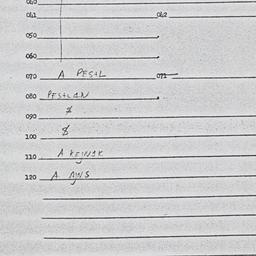 040
041 042
050
060
070 A PESTL 071
080 PESTLAN
090 $
100 $
110 A KEJNSK
120 A